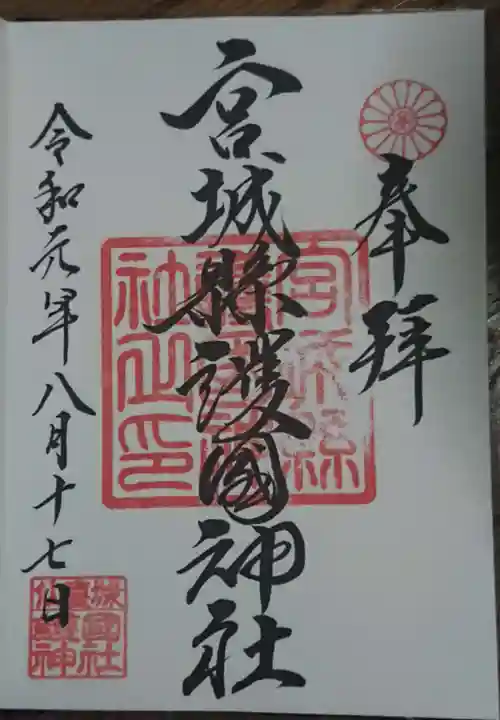 奉拝
宮城縣護國神社
令和元年八月十七日
宮城縣護國神社之印